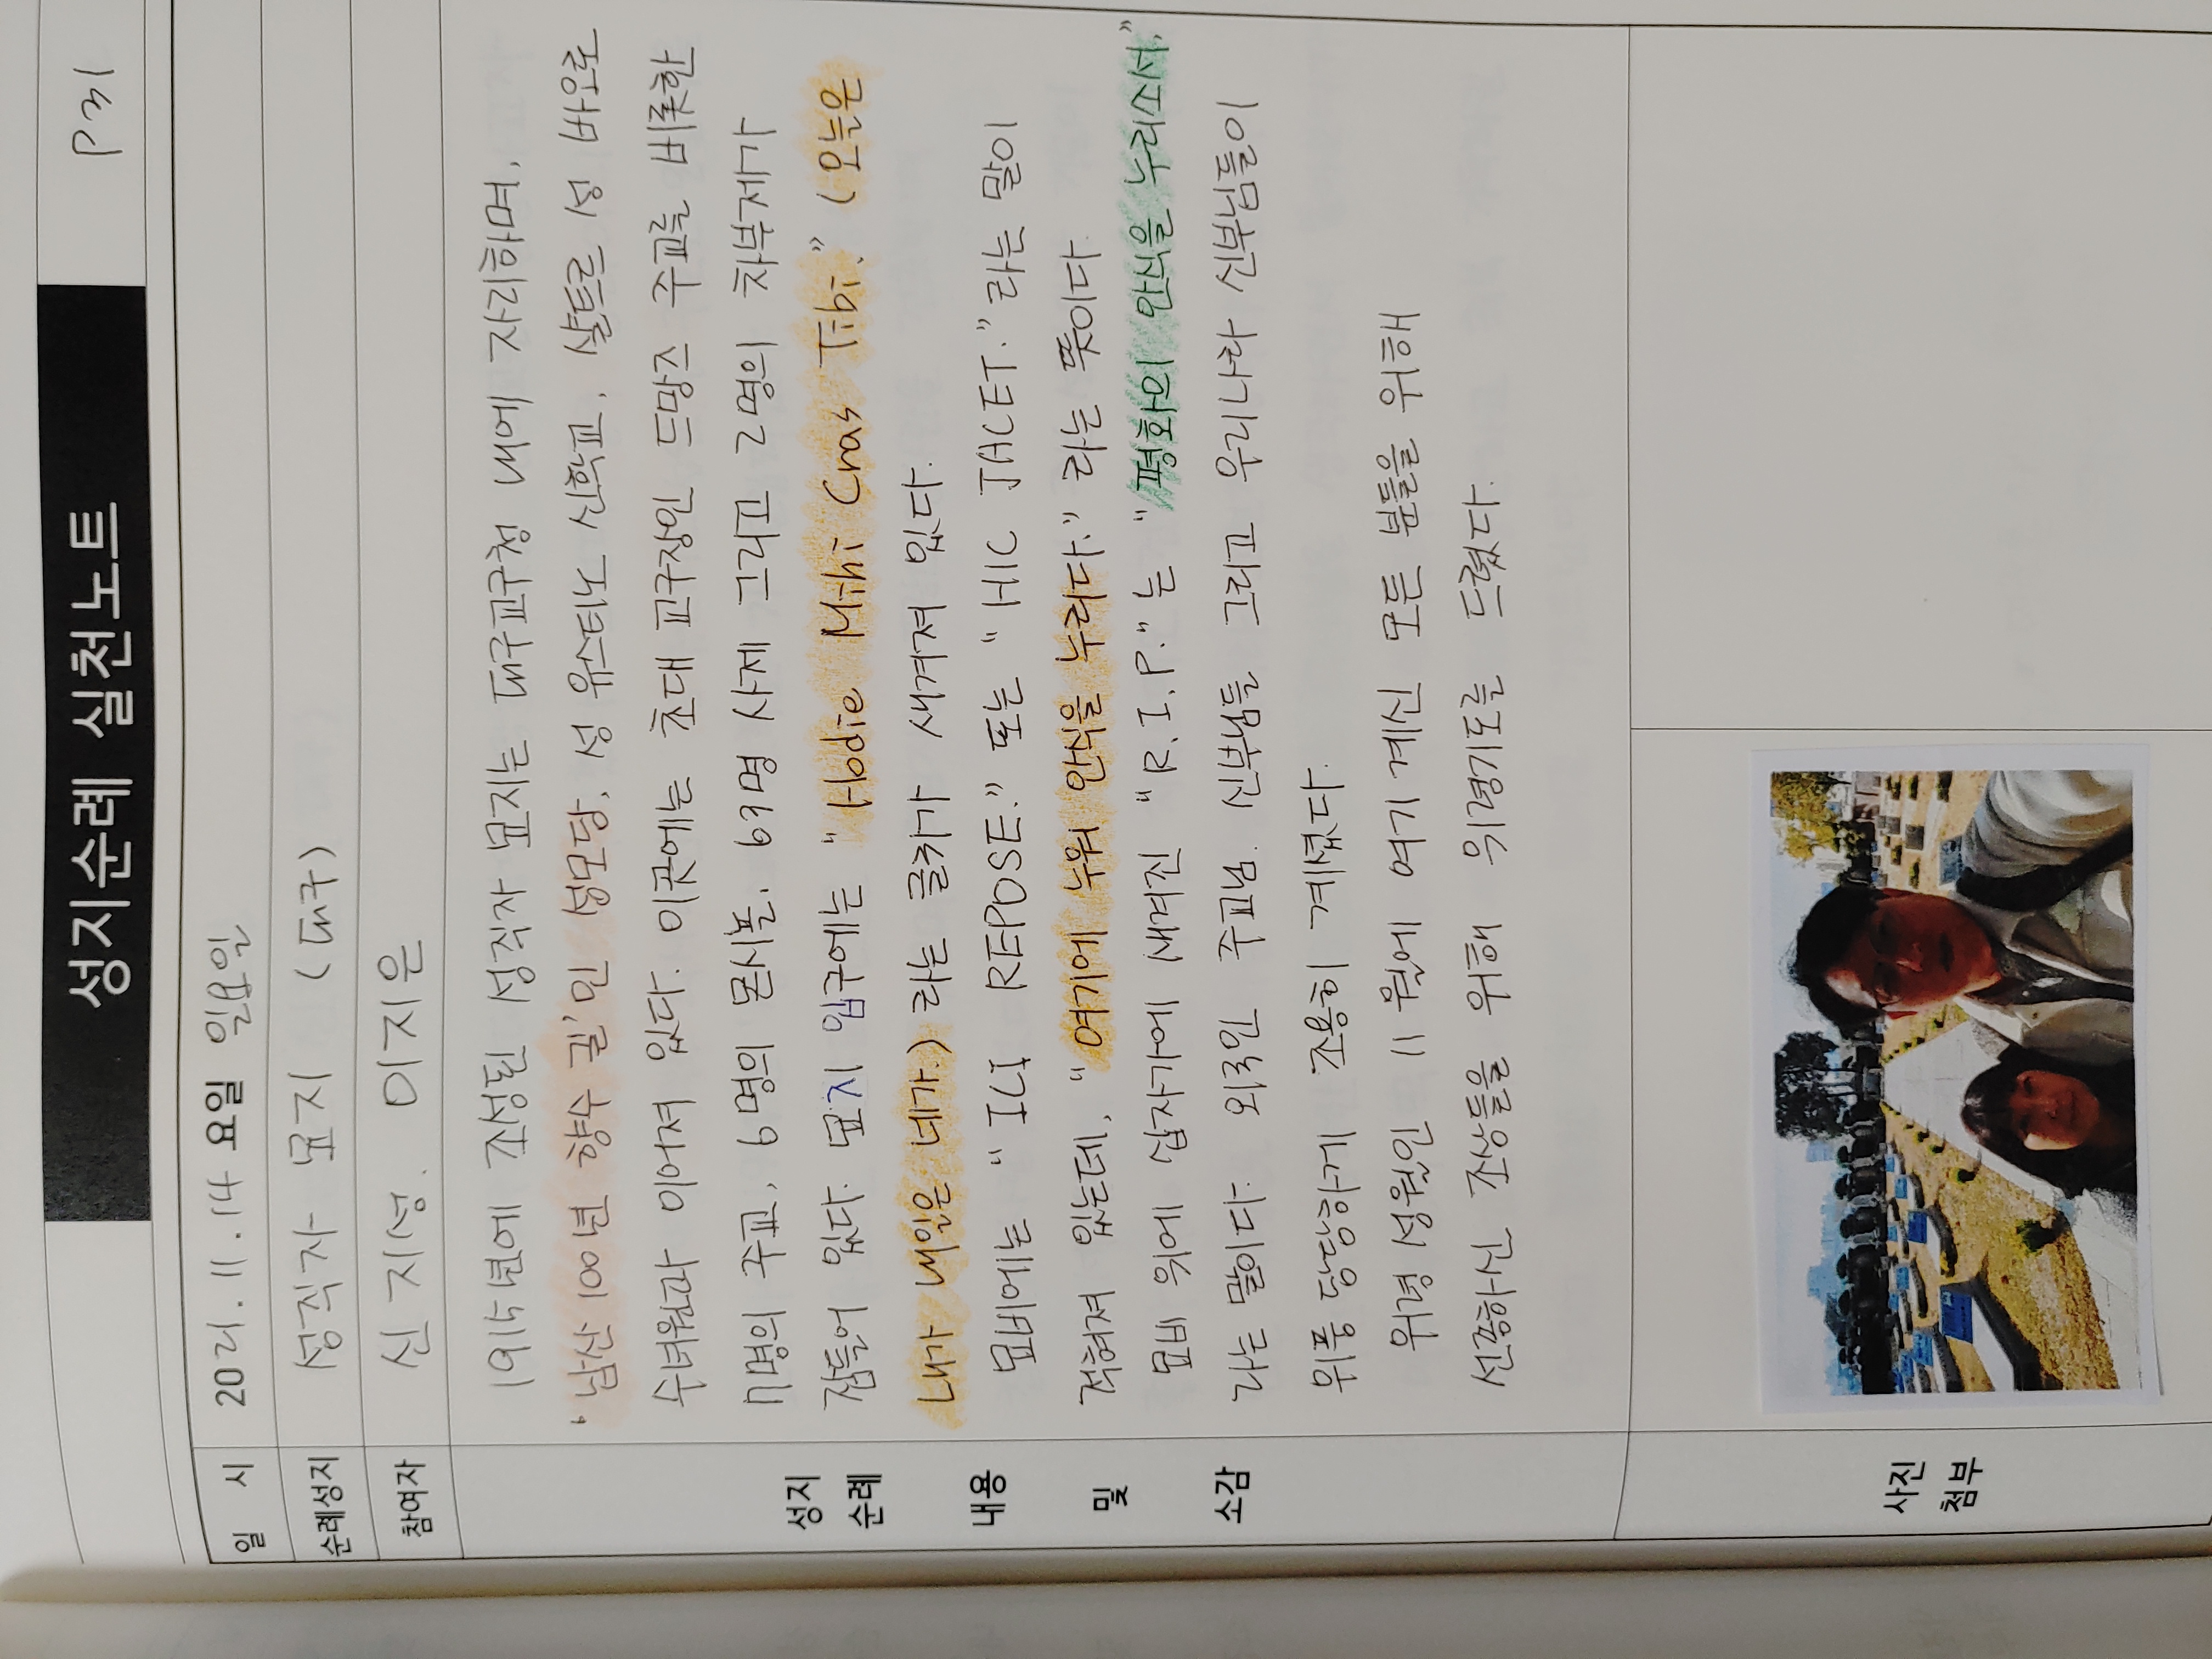 성지순례 실천노트
P31
일 시 2021.11.14 요일 일요일
순례성지 성직자 묘지 (대구)
참여자 신지성. 이지은
성지
순례
내용
및
소감
1915년에 조성된 성직자 묘지는 대구교구청 내에 자리하며,
'남산 100년 향수 길'인 성모당, 성 유스티노 신학교, 샬트르 성 바오로
수녀원과 이어져 있다. 이곳에는 초대 교구장인 드망즈 주교를 비롯한
7명의 주교, 6명의 몬시뇰, 63명 사제 그리고 2명의 차부제가
잠들어 있다. 묘지 입구에는 "Hodie Mihi Cras Tibi." (오늘은
내가 내일은 네가.) 라는 글귀가 새겨져 있다.
묘비에는 "ICI REPOSE." 또는 "HIC JACET." 라는 말이
적혀져 있는데, "여기에 누워 안식을 누리다." 라는 뜻이다.
묘비 위에 십자가에 새겨진 "R.I.P."는 "평화의 안식을 누리시서."
라는 말이다. 외국인 주교님. 신부님들 그리고 우리나라 신부님들이
위풍 당당하게 조용히 계셨다.
위령 성월인 11월에 여기 계신 모든 분들을 위해
선종하신 조상들을 위해 위령기도를 드렸다.
사진
첨부